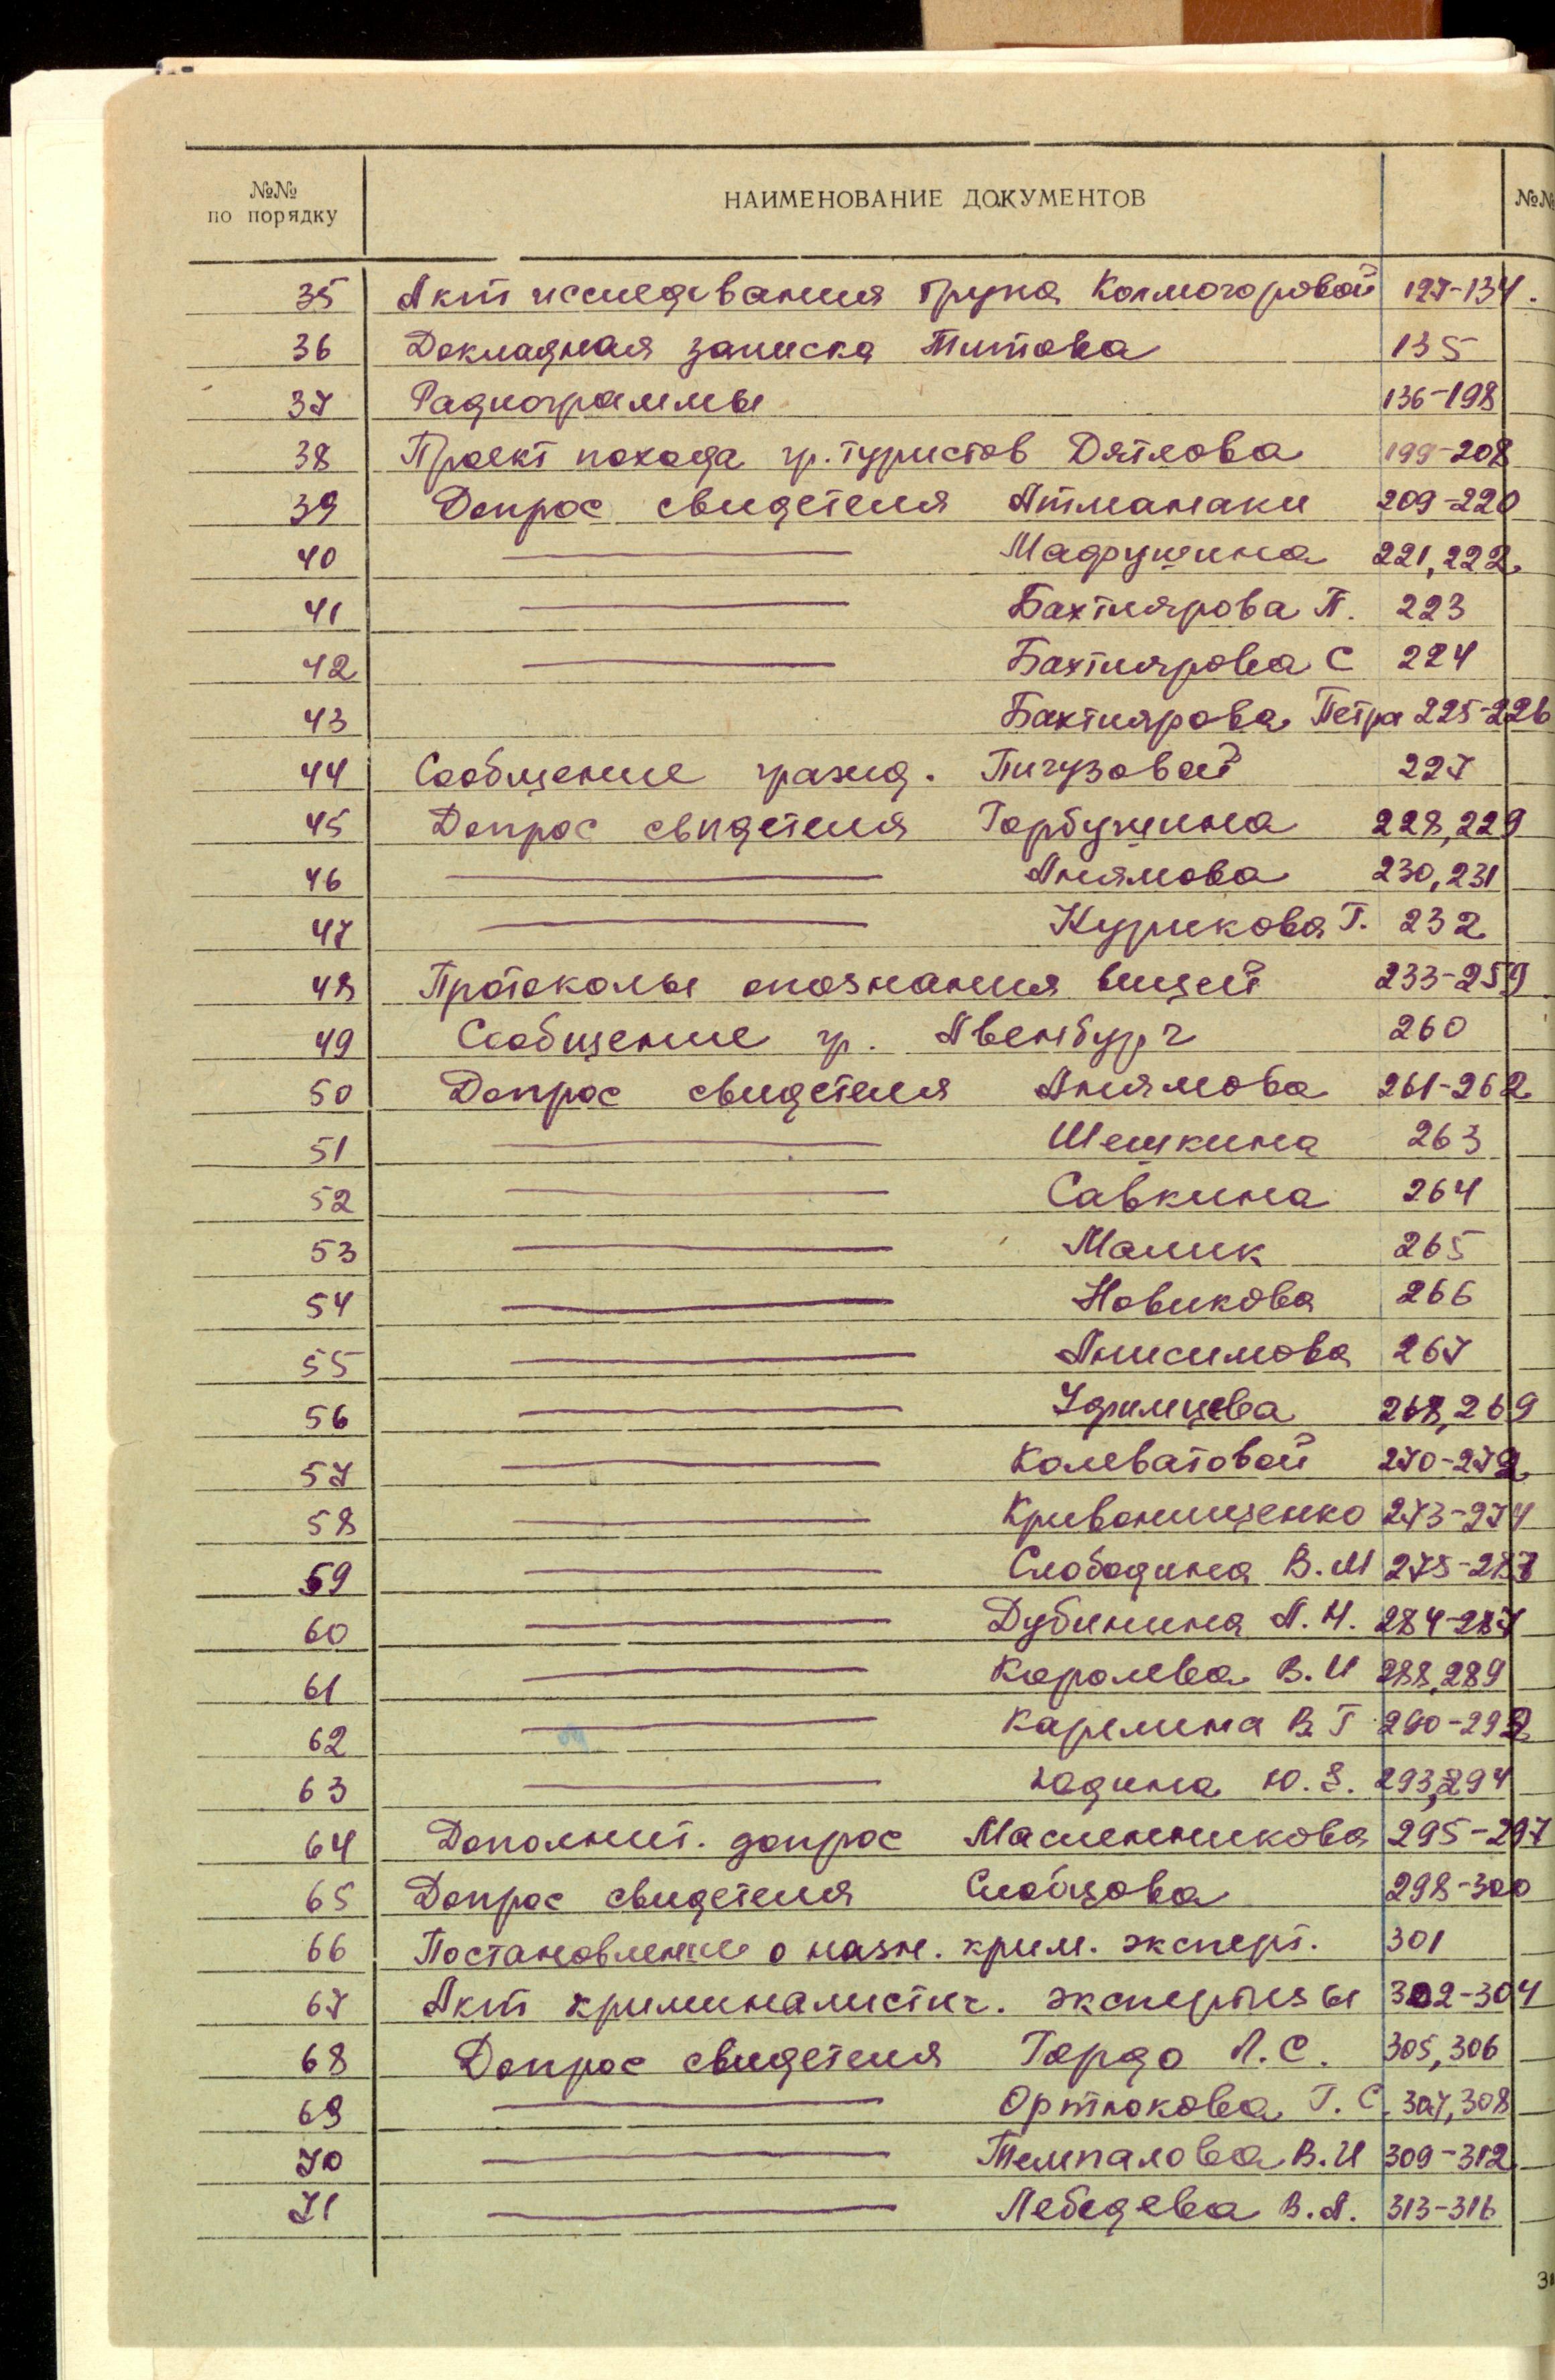 №№ по порядку НАИМЕНОВАНИЕ ДОКУМЕНТОВ №№
35 Акт исследования трупа Колмогоровой 127-134.
36 Докладная записка Титова 135
37 Радиограммы 136-198
38 Проект похода гр. туристов Дятлова 199-208
39 Допрос свидетеля Атманаки 209-220
40 —— Мадрушина 221, 222
41 —— Бахтиярова П. 223
42 —— Бахтиярова С 224
43 Бахтиярова Петра 225-226
44 Сообщение гражд. Пигузовой 227
45 Допрос свидетеля Горбушина 228, 229
46 —— Анямова 230, 231
47 —— Курикова Г. 232
48 Протоколы опознания вещей 233-259
49 Сообщение гр. Авенбург 260
50 Допрос свидетеля Анямова 261-262
51 —— Шешкина 263
52 —— Савкина 264
53 —— Малик 265
54 —— Новикова 266
55 —— Анисимова 267
56 —— Удримцева 268, 269
57 —— Колеватовой 270-272
58 —— Кривонищенко 273-274
59 —— Слободина В. М 275-283
60 —— Дубинина А. Н. 284-287
61 —— Королева В. И 288, 289
62 —— Карелина В Г 290-292
63 —— Юдина Ю. Е. 293, 294
64 Дополнит. допрос Масленникова 295-297
65 Допрос свидетеля Слобцова 298-300
66 Постановление о назн. крим. эксперт. 301
67 Акт криминалистич. экспертизы 302-304
68 Допрос свидетеля Гордо Л. С. 305, 306
69 —— Ортюкова Г. С. 307, 308
70 —— Темпалова В. И 309-312
71 —— Лебедева В. А. 313-316